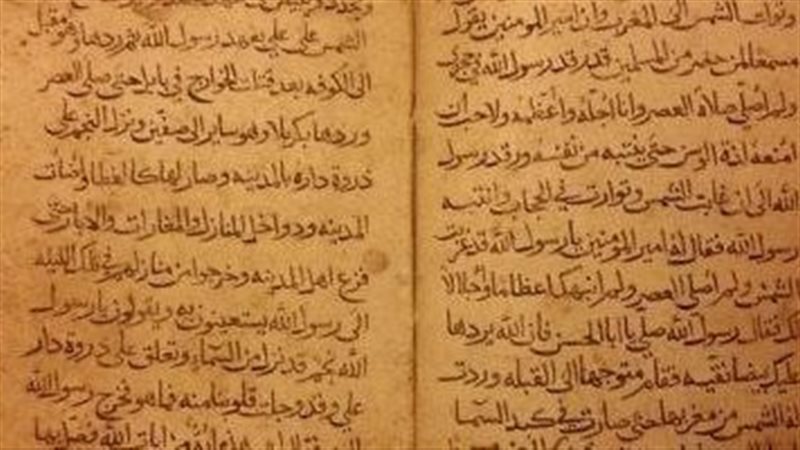 الشمس الى المغرب وان امير المومنين يقول
مستمعا لمن حضر من المسلمين قد رقد رسول الله في حجرى
ولم اصلي صلاة العصر وانا اجله واعظمه ولا احب ان
امنعه لذة الوسن حتى ينتبه من نفسه ورقد رسول
الله الى ان غابت الشمس وتوارت في الحجاب وانتبه
رسول الله فقال له امير المومنين يا رسول الله قد غربت
الشمس ولم اصلي العصر ولم انبهك اعظاما واجلالا
لك فقال رسول الله صلي يا ابا الحسن فان الله يردها
عليك بيضا نقيه فقام متوجها الى القبله وردت
له الشمس من مغربها حتى صارت في كبد السما
الشمس على علي بعهد رسول الله ثم ردها وهو مقبل
الى الكوفه بعد قتلت الخوارج في بابل حتى صلى العصر
وردها بكربلا وهو ساير الى صفين ونزل النجم على
ذروة داره بالمدينه وصار لها واضات
المدينه ودواخل المنازل والمغارات والابار حتى
فزع اهل المدينه وخرجوا من منازلهم في تلك الليله
الى رسول الله يستغيثون به ويقولون يا رسول
الله نجم قد نزل من السماء وتعلق على ذروة دار
علي وقد وجلت قلوبنا منه فما هو فخرج رسول الله